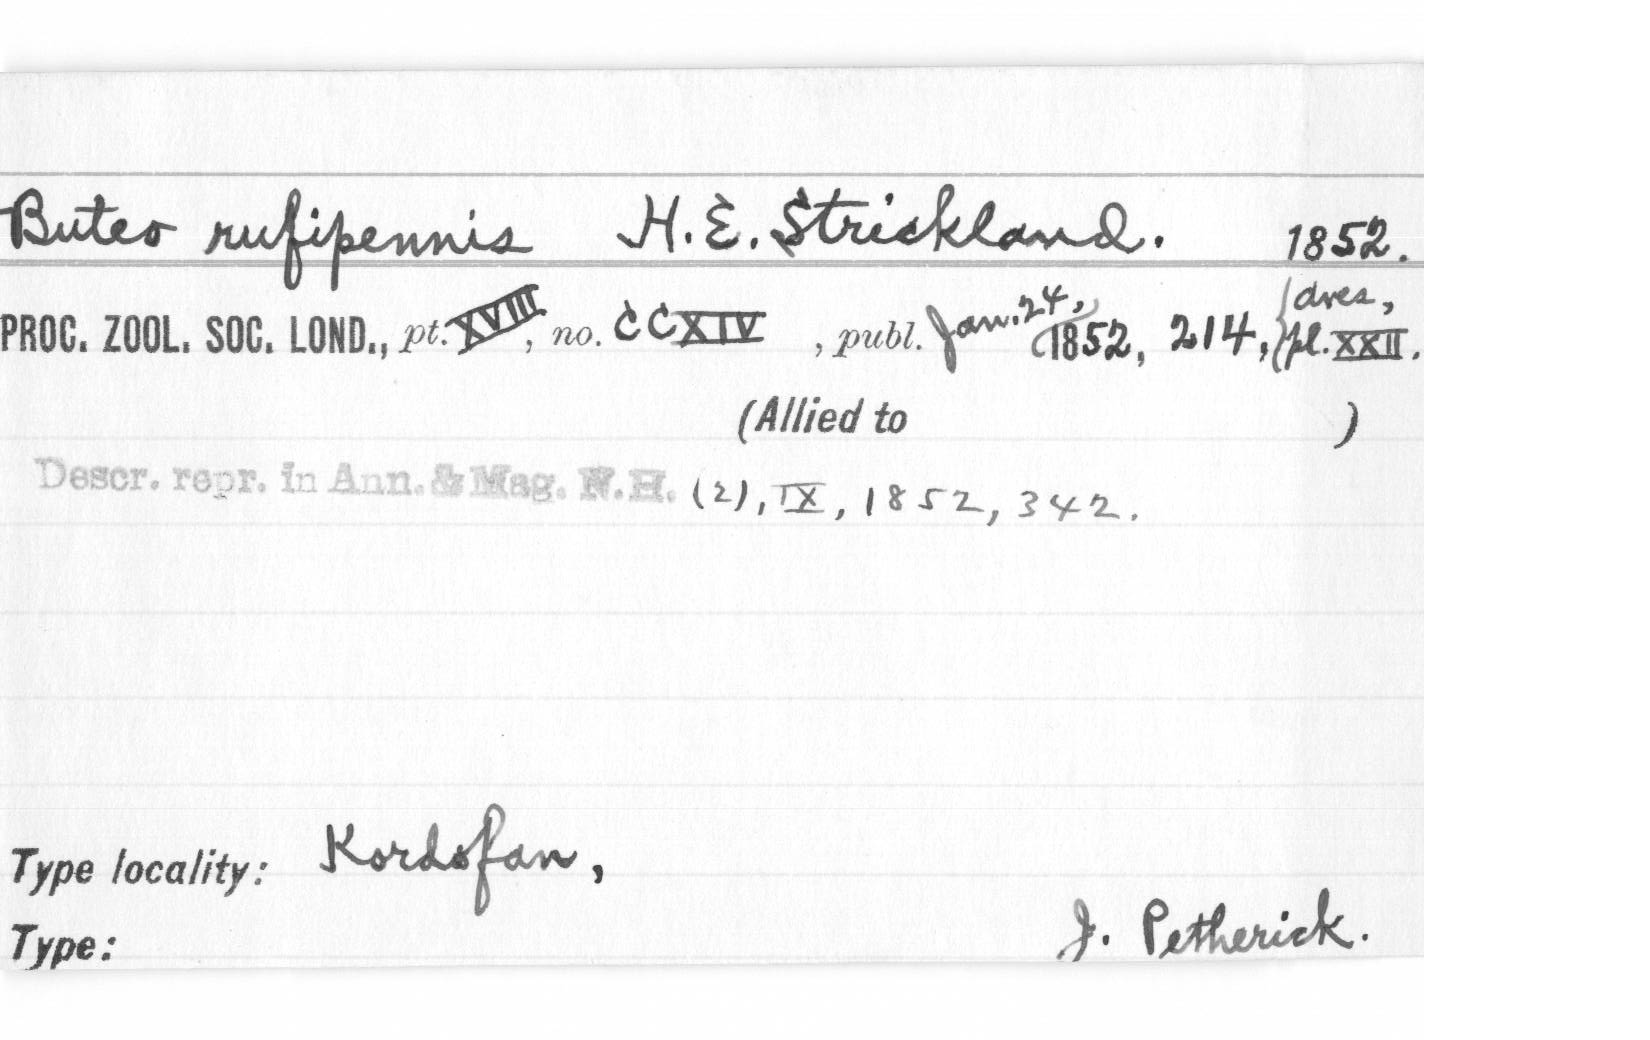 Buteo rufipennis H. E. Strickland. 1852.
PROC. ZOOL. SOC. LOND., pt. XVIII, no. CCXIV, publ. Jan. 24, 1852, 214, {Aves, pl. XXII.
(Allied to )
Descr. repr. in Ann. & Mag. N.H. (2), IX, 1852, 342.
Type locality: Kordofan,
J. Petherick.
Type: